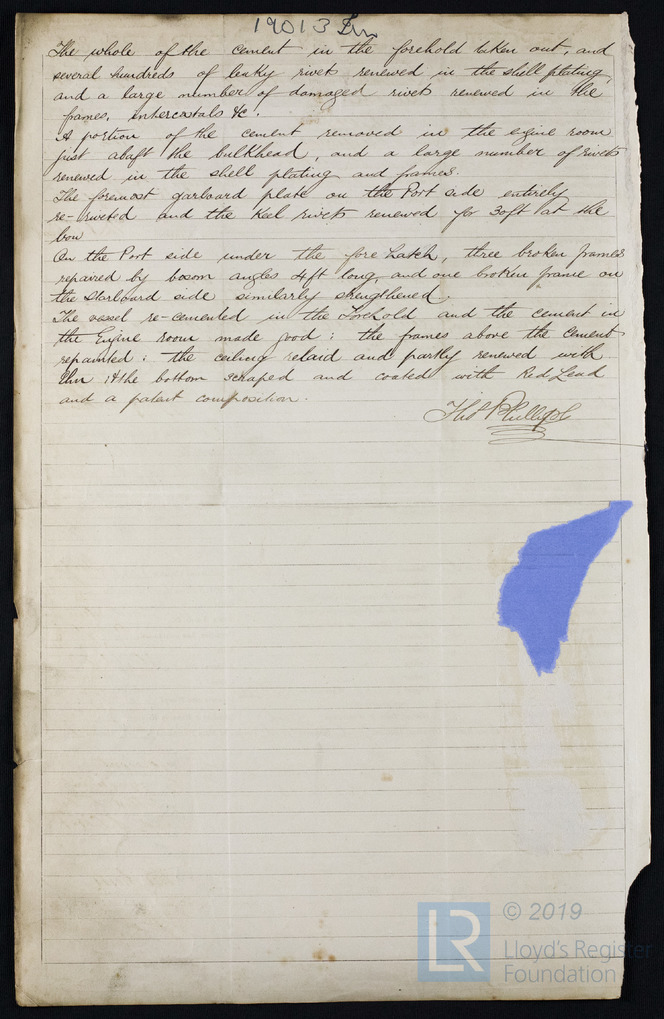 19013 Iron
The whole of the cement in the forehold taken out, and
several hundreds of leaky rivets renewed in the shell plating
and a large number of damaged rivets renewed in the
frames, intercostals &c.
A portion of the cement removed in the egine room
just abaft the bulkhead, and a large number of rivets
renewed in the shell plating and frames.
The foremost garboard plate on the Port side entirely
re-riveted and the Keel rivets renewed for 30ft at the
bow
On the Port side under the fore hatch, three broken frames
repaired by bosom angles 4ft long, and one broken frame on
the starboard side similarly strengthened.
The vessel re-cemented in the Forehold and the cement in
the Engine room made good; the frames above the cement
repainted; the ceiling relaid and partly renewed with
the bottom scraped and coated with Red Lead
and a patent composition.
Thos Phillips
LR
© 2019
Lloyd's Register
Foundation